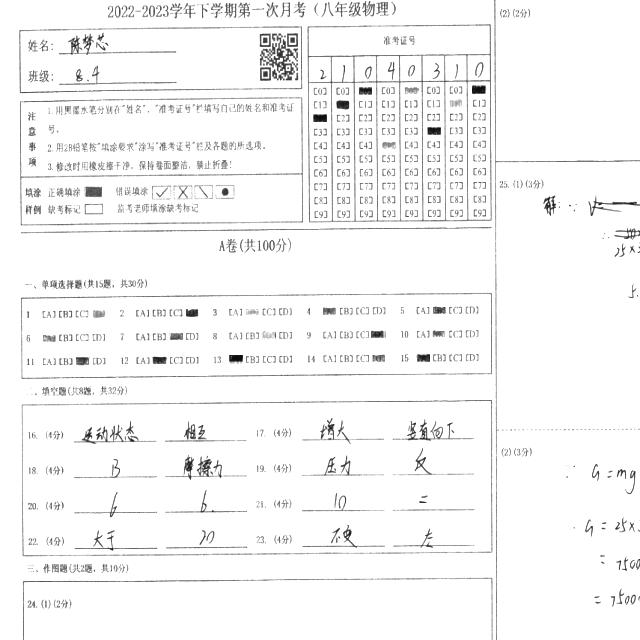 2022-2023学年下学期第一次月考（八年级物理）
姓名： 陈梦芯
班级： 8.4
准考证号
2 1 0 4 0 3 1 0
[0] [0] [0] [0] [0] [0]
[1] [1] [1] [1] [1]
[2] [2] [2] [2] [2] [2] [2]
[3] [3] [3] [3] [3] [3] [3]
[4] [4] [4] [4] [4] [4] [4]
[5] [5] [5] [5] [5] [5] [5] [5]
[6] [6] [6] [6] [6] [6] [6] [6]
[7] [7] [7] [7] [7] [7] [7] [7]
[8] [8] [8] [8] [8] [8] [8] [8]
[9] [9] [9] [9] [9] [9] [9] [9]
注意事项
1.用黑墨水笔分别在"姓名"、"准考证号"栏填写自己的姓名和准考证号。
2.用2B铅笔按"填涂要求"涂写"准考证号"栏及各题的所选项。
3.修改时用橡皮擦干净，保持卷面整洁，禁止折叠！
填涂样例 正确填涂 错误填涂
缺考标记 监考老师填涂缺考标记
A卷(共100分)
一、单项选择题(共15题，共30分)
1 [A] [B] [C] 2 [A] [B] [C] 3 [A] [C] [D] 4 [B] [C] [D] 5 [A] [C] [D]
6 [B] [C] [D] 7 [A] [B] [D] 8 [A] [B] [D] 9 [A] [B] [C] [D] 10 [A] [C] [D]
11 [A] [B] [D] 12 [A] [B] [D] 13 [B] [C] [D] 14 [A] [B] [C] [D] 15 [B] [C] [D]
二、填空题(共8题，共32分)
16. (4分) 运动状态 相互 17. (4分) 增大 竖直向下
18. (4分) B 摩擦力 19. (4分) 压力 反
20. (4分) 6 6. 21. (4分) 10 =
22. (4分) 大于 20 23. (4分) 不变 左
三、作图题(共2题，共10分)
24. (1) (2分)
(2) (2分)
25. (1) (3分)
解: ∵
∴
25×
5.
(2) (3分)
∵ G=mg
G=25×
= 7500
= 7500